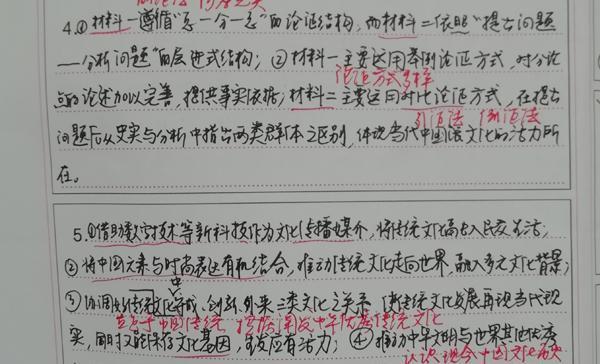 4.①材料一遵循“总—分—总”的论证结构，而材料二依照“提出问题
——分析问题”的层进式结构；②材料一主要运用举例论证方式，对分论
论证方式多样
点的论述加以完善，提供事实依据；材料二主要运用对比论证方式，在提出
引证法 例证法
问题后从史实与分析中指出两类群体之区别，体现当代中国流文化的活力所
在。
5.①借助数字技术等新科技作为文化传播媒介，将传统文化融入民众生活；
②将中国元素与时尚表达有机结合，推动传统文化走向世界，融入多元文化背景；
③协调好传统文化守成、创新、外来三类文化之关系，使传统文化发展再现当代现
立足于中国传统 挖掘 开发中华优秀传统文化
实，同时又能保存文化基因，焕发应有活力；④推动中华文明与世界其他
认识 现今中国文化